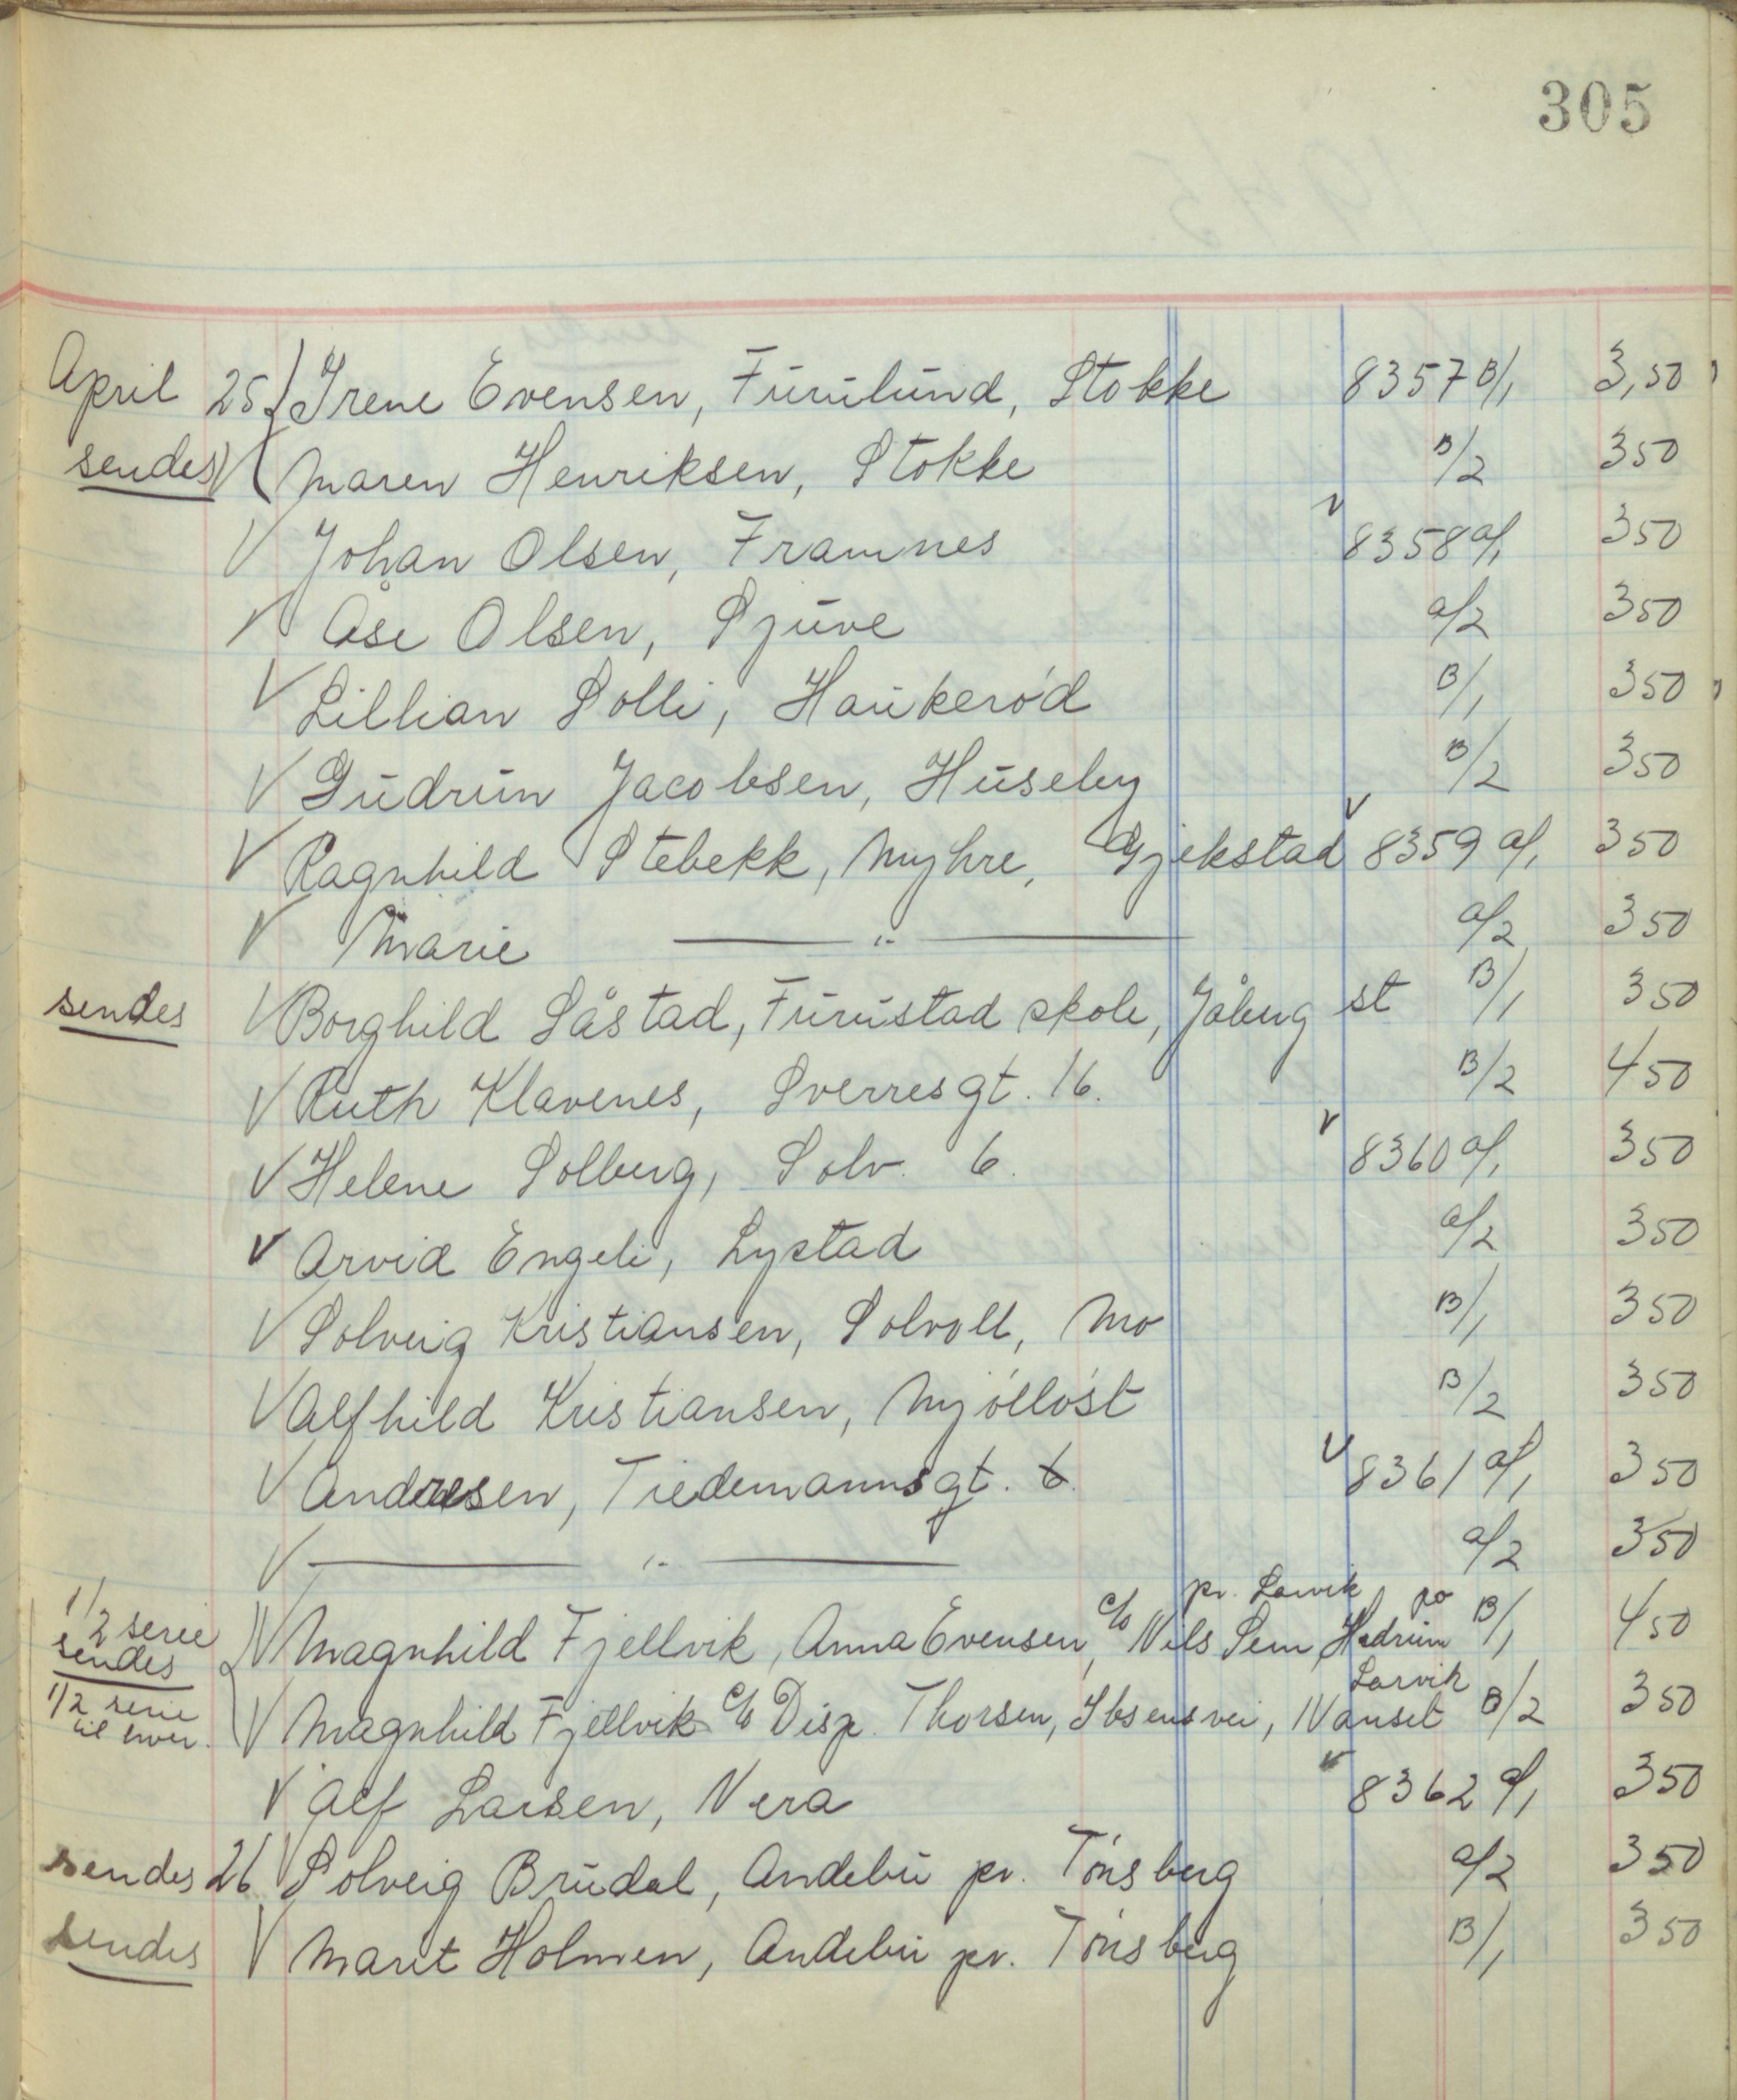 305
April 25 Irene Evensen, Furulund, Stokke 8357 B/1 3,50
sendes V Maren Henriksen, Stokke B/2 350
V Johan Olsen, Framnes V 8358 a/1 350
V Åse Olsen, Sjuve a/2 350
V Lillian Solli, Haukerød B/1 350
V Gudrun Jacobsen, Huseby B/2 350
V Ragnhild Stebekk, Myhre, Gjekstad V 8359 a/1 350
V Marie —— " —— a/2 350
sendes V Borghild Såstad, Furustad skole, Jåberg st B/1 350
V Ruth Klavenes, Sverresgt. 16. B/2 450
V Helene Solberg, Solv. 6. V 8360 a/1 350
V Arvid Engeli, Lystad a/2 350
V Solveig Kristiansen, Solvoll, Mo B/1 350
V Alfhild Kristiansen, Mjølløst B/2 350
V Andresen, Tiedemannsgt. 6. V 8361 a/1 350
V —— " —— a/2 350
pr. Larvik po
1/2 serie sendes V Magnhild Fjellvik, Anna Evensen, c/o Nils Sem, Hedrum B/1 450
Larvik
1/2 serie til hver. V Magnhild Fjellvik c/o Disp. Thorsen, Ibsensvei, Nanset B/2 350
V Alf Larsen, Vera V 8362 a/1 350
sendes 26 V Solveig Brudal, Andebu pr. Tønsberg a/2 350
sendes V Marit Holmen, Andebu pr. Tønsberg B/1 350